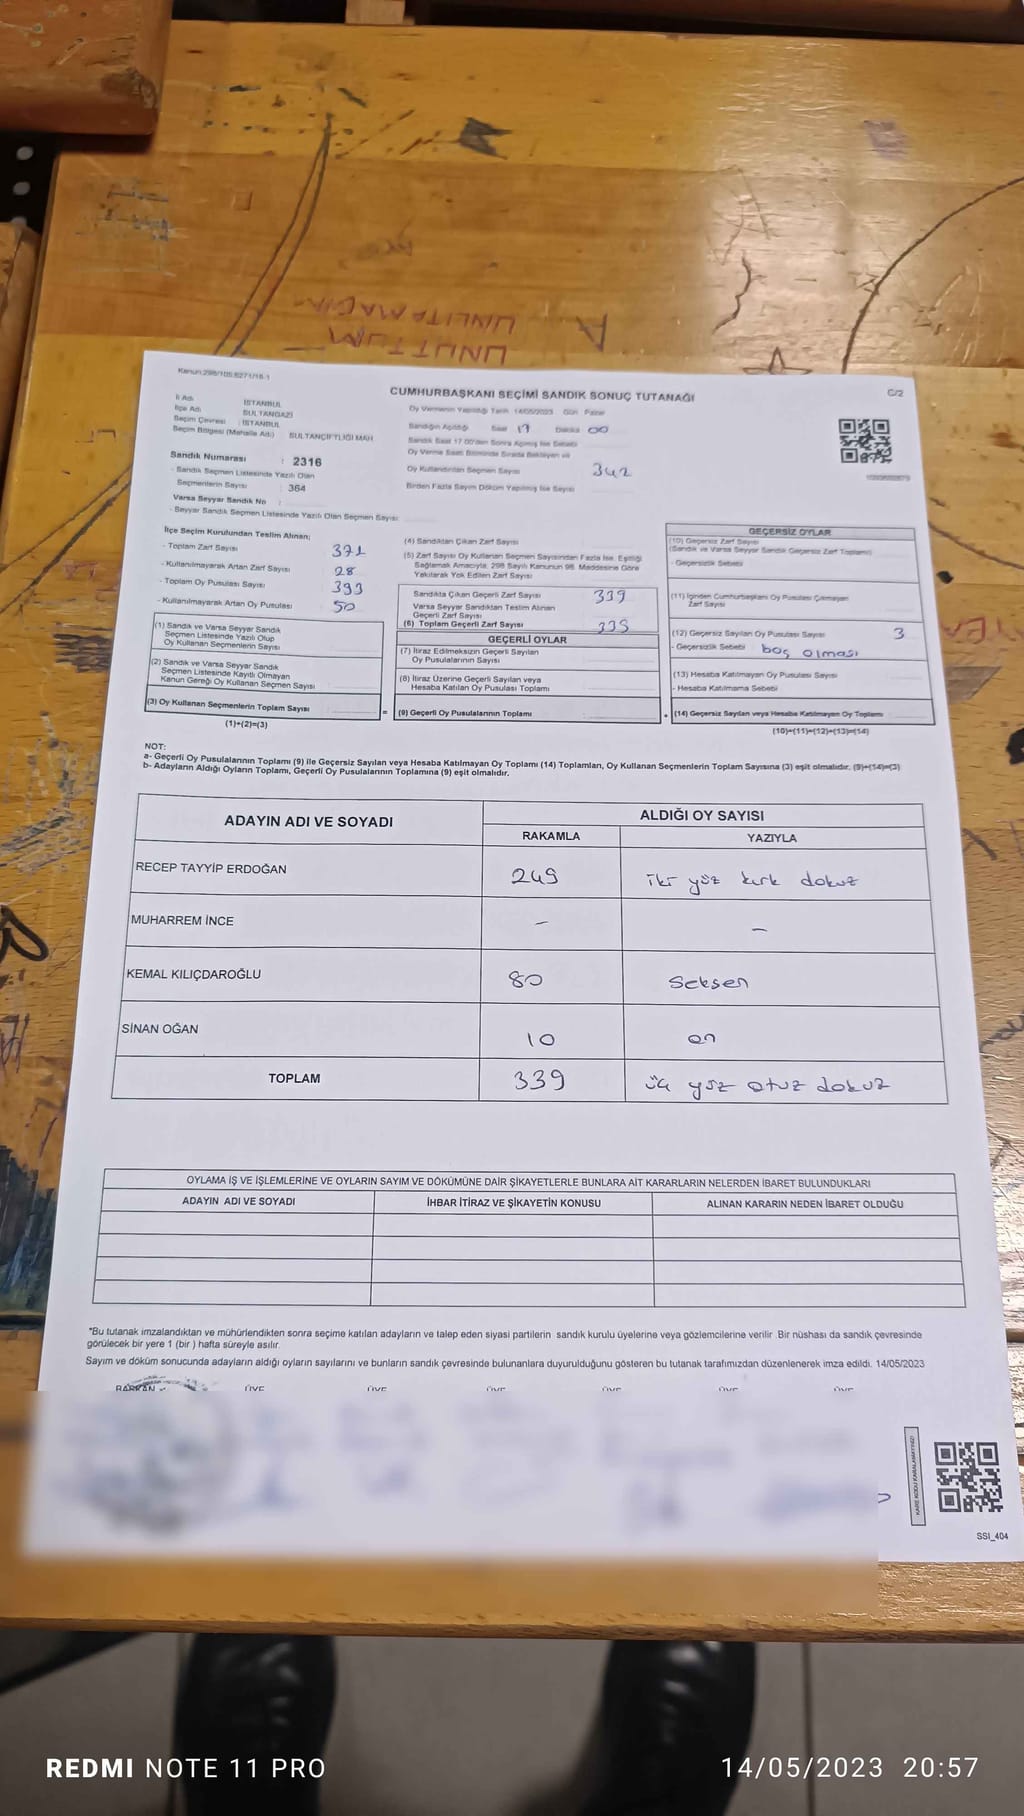 UNUTTUM
Kanun:298/105.6271/18-1
CUMHURBAŞKANI SEÇİMİ SANDIK SONUÇ TUTANAĞI
C/2
İl Adı İSTANBUL
İlçe Adı SULTANGAZİ
Seçim Çevresi : İSTANBUL
Seçim Bölgesi (Mahalle Adı) SULTANÇİFTLİĞİ MAH
Sandık Numarası : 2316
- Sandık Seçmen Listesinde Yazılı Olan
Seçmenlerin Sayısı : 364
Varsa Seyyar Sandık No :
- Seyyar Sandık Seçmen Listesinde Yazılı Olan Seçmen Sayısı:
Oy Vermenin Yapıldığı Tarih 14/05/2023 Gün Pazar
Sandığın Açıldığı Saat 17 Dakika 00
Sandık Saat 17.00'den Sonra Açılmış İse Sebebi
Oy Verme Saati Bitiminde Sırada Bekleyen ve
Oy Kullandırılan Seçmen Sayısı 342
Birden Fazla Sayım Döküm Yapılmış İse Sayısı
İlçe Seçim Kurulundan Teslim Alınan;
- Toplam Zarf Sayısı 371
- Kullanılmayarak Artan Zarf Sayısı 28
- Toplam Oy Pusulası Sayısı 393
- Kullanılmayarak Artan Oy Pusulası 50
(1) Sandık ve Varsa Seyyar Sandık
Seçmen Listesinde Yazılı Olup
Oy Kullanan Seçmenlerin Sayısı
(2) Sandık ve Varsa Seyyar Sandık
Seçmen Listesinde Kayıtlı Olmayan
Kanun Gereği Oy Kullanan Seçmen Sayısı
(3) Oy Kullanan Seçmenlerin Toplam Sayısı
(1)+(2)=(3)
(4) Sandıktan Çıkan Zarf Sayısı
(5) Zarf Sayısı Oy Kullanan Seçmen Sayısından Fazla İse, Eşitliği
Sağlamak Amacıyla, 298 Sayılı Kanunun 98. Maddesine Göre
Yakılarak Yok Edilen Zarf Sayısı
Sandıkta Çıkan Geçerli Zarf Sayısı 339
Varsa Seyyar Sandıktan Teslim Alınan
Geçerli Zarf Sayısı
(6) Toplam Geçerli Zarf Sayısı 339
GEÇERLİ OYLAR
(7) İtiraz Edilmeksizin Geçerli Sayılan
Oy Pusulalarının Sayısı
(8) İtiraz Üzerine Geçerli Sayılan veya
Hesaba Katılan Oy Pusulası Toplamı
= (9) Geçerli Oy Pusulalarının Toplamı
GEÇERSİZ OYLAR
(10) Geçersiz Zarf Sayısı
(Sandık ve Varsa Seyyar Sandık Geçersiz Zarf Toplamı)
- Geçersizlik Sebebi
(11) İçinden Cumhurbaşkanı Oy Pusulası Çıkmayan
Zarf Sayısı
(12) Geçersiz Sayılan Oy Pusulası Sayısı 3
- Geçersizlik Sebebi boş olması
(13) Hesaba Katılmayan Oy Pusulası Sayısı
- Hesaba Katılmama Sebebi
+ (14) Geçersiz Sayılan veya Hesaba Katılmayan Oy Toplamı
(10)+(11)+(12)+(13)=(14)
NOT:
a- Geçerli Oy Pusulalarının Toplamı (9) ile Geçersiz Sayılan veya Hesaba Katılmayan Oy Toplamı (14) Toplamları, Oy Kullanan Seçmenlerin Toplam Sayısına (3) eşit olmalıdır. (9)+(14)=(3)
b- Adayların Aldığı Oyların Toplamı, Geçerli Oy Pusulalarının Toplamına (9) eşit olmalıdır.
ADAYIN ADI VE SOYADI ALDIĞI OY SAYISI
RAKAMLA YAZIYLA
RECEP TAYYİP ERDOĞAN 249 iki yüz kırk dokuz
MUHARREM İNCE - -
KEMAL KILIÇDAROĞLU 80 Seksen
SİNAN OĞAN 10 on
TOPLAM 339 üç yüz otuz dokuz
OYLAMA İŞ VE İŞLEMLERİNE VE OYLARIN SAYIM VE DÖKÜMÜNE DAİR ŞİKAYETLERLE BUNLARA AİT KARARLARIN NELERDEN İBARET BULUNDUKLARI
ADAYIN ADI VE SOYADI İHBAR İTİRAZ VE ŞİKAYETİN KONUSU ALINAN KARARIN NEDEN İBARET OLDUĞU
*Bu tutanak imzalandıktan ve mühürlendikten sonra seçime katılan adayların ve talep eden siyasi partilerin sandık kurulu üyelerine veya gözlemcilerine verilir. Bir nüshası da sandık çevresinde
görülecek bir yere 1 (bir) hafta süreyle asılır.
Sayım ve döküm sonucunda adayların aldığı oyların sayılarını ve bunların sandık çevresinde bulunanlara duyurulduğunu gösteren bu tutanak tarafımızdan düzenlenerek imza edildi. 14/05/2023
BAŞKAN ÜYE ÜYE ÜYE ÜYE ÜYE ÜYE
KARE KODU KARALAMAYINIZ!
SSI_404
REDMI NOTE 11 PRO
14/05/2023 20:57